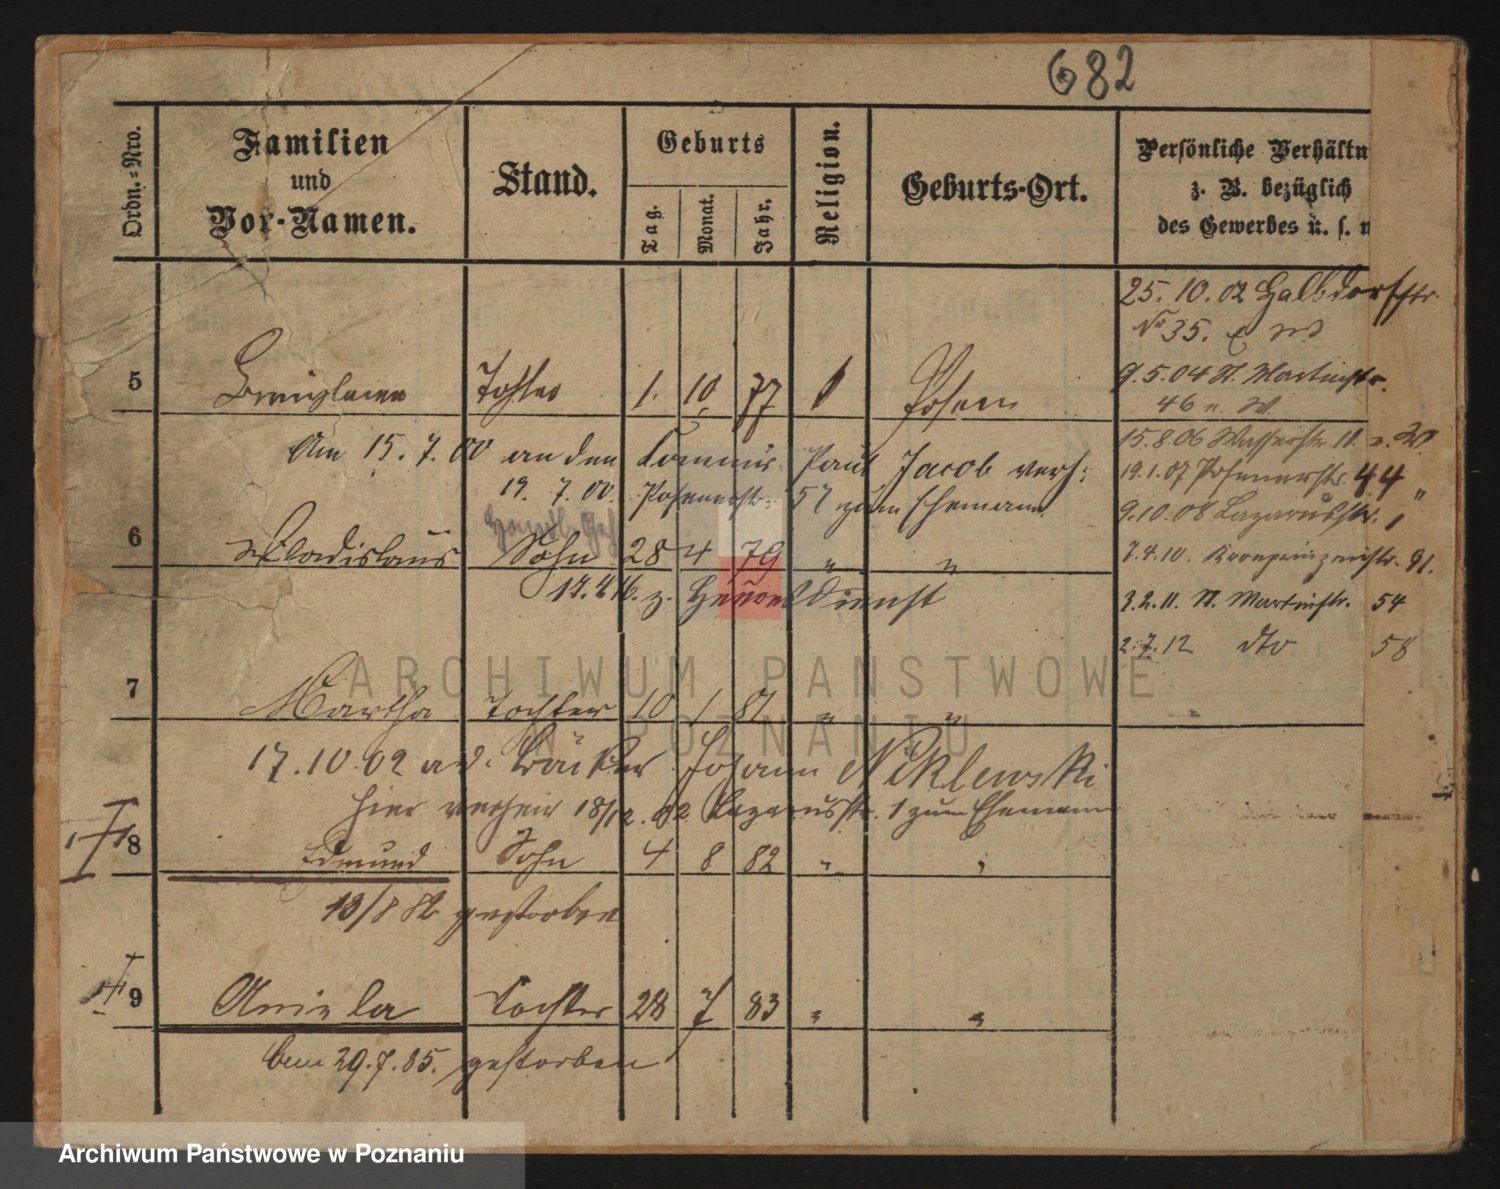 682
Ordn.=Nro.
Familien
und
Vor-Namen.
Stand.
Geburts
Tag.
Monat.
Jahr.
Religion.
Geburts-Ort.
Persönliche Verhältn
z. B. bezüglich
des Gewerbes u. s. w
25. 10. 02 Halbdorfstr.
No 35.
9.5.04 St. Martinstr.
46 n. W.
15.8.06 Wasserstr. 11. n. W
19.1.07 Posenerstr. 44 "
9.10.08 Lazarusstr. 1
7.4.10. Kronprinzenstr. 91.
3.2.11. St. Martinstr. 54
2.7.12 dto 58
5 Tochter 1. 10 77 Posen
Am 15. 7. 00 an den Commis Paul Jacob verh:
19. 7. 00. Posenerstr. 57 zum Ehemann
6 Wladislaus Sohn 28 4 79 " "
17.4.16. z. Heeresdienst
7 Martha Tochter 10 1 81 " "
17.10.02 a. d. Bäcker Johann Niklewski
hier verheir 18/12. 02 Lazarusstr. 1 zum Ehemann
8 Edmund Sohn 4 8 82 " "
13/8 82 gestorben
9 Aniela Tochter 28 7 83 " "
29.7.85. gestorben
ARCHIWUM PAŃSTWOWE
W POZNANIU
Archiwum Państwowe w Poznaniu